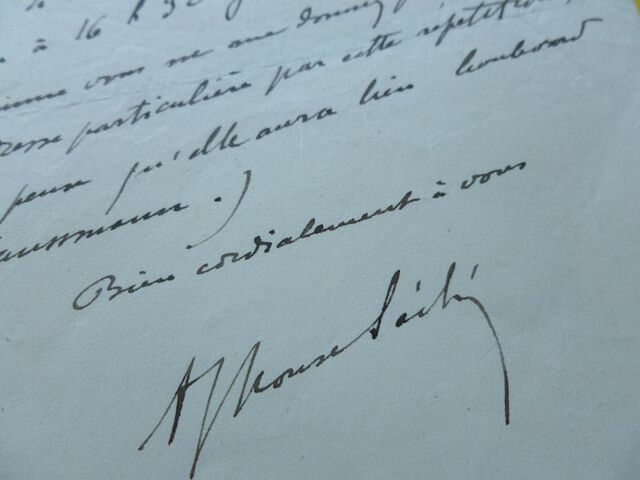 à 16 h 30
vous ne me donnez
particulière par cette répétition,
pense qu'elle aura lieu boulevard
aussmann.)
Bien cordialement à vous
Alphonse Séché